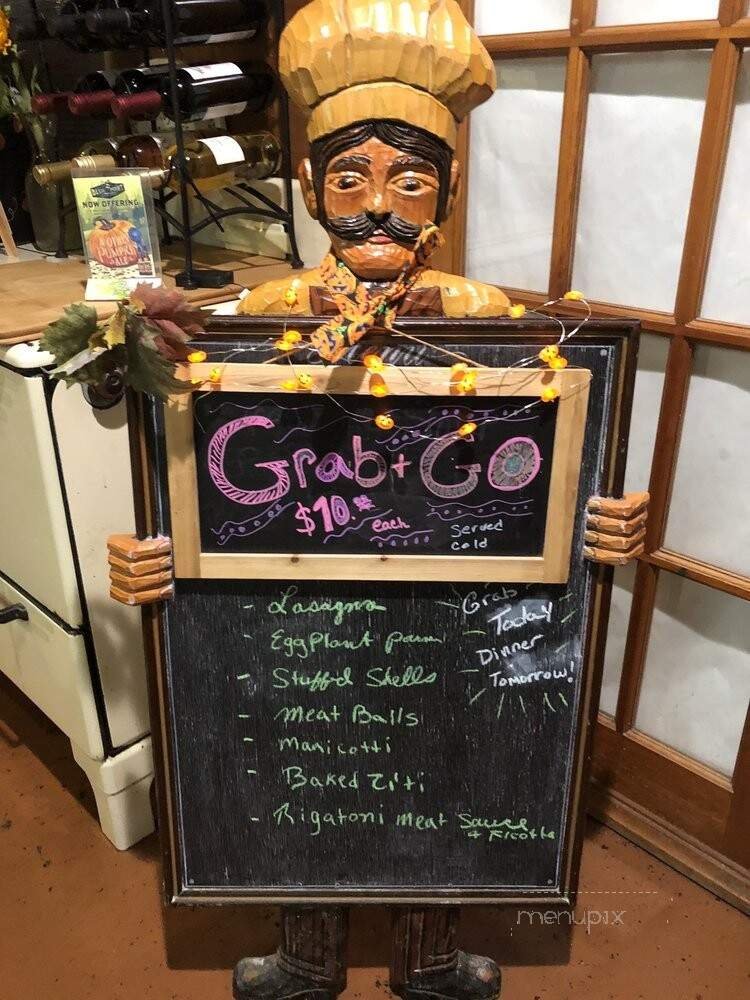 NOW OFFERING
PUMPKIN
ALE
Grab + Go
$10.00 each
Served
cold
- Lasagna
- Eggplant parm
- Stuff'd Shells
- Meat Balls
- Manicotti
- Baked Ziti
- Rigatoni meat Sauce
+ Ricotta
Grab
Today
Dinner
Tomorrow!
menupix